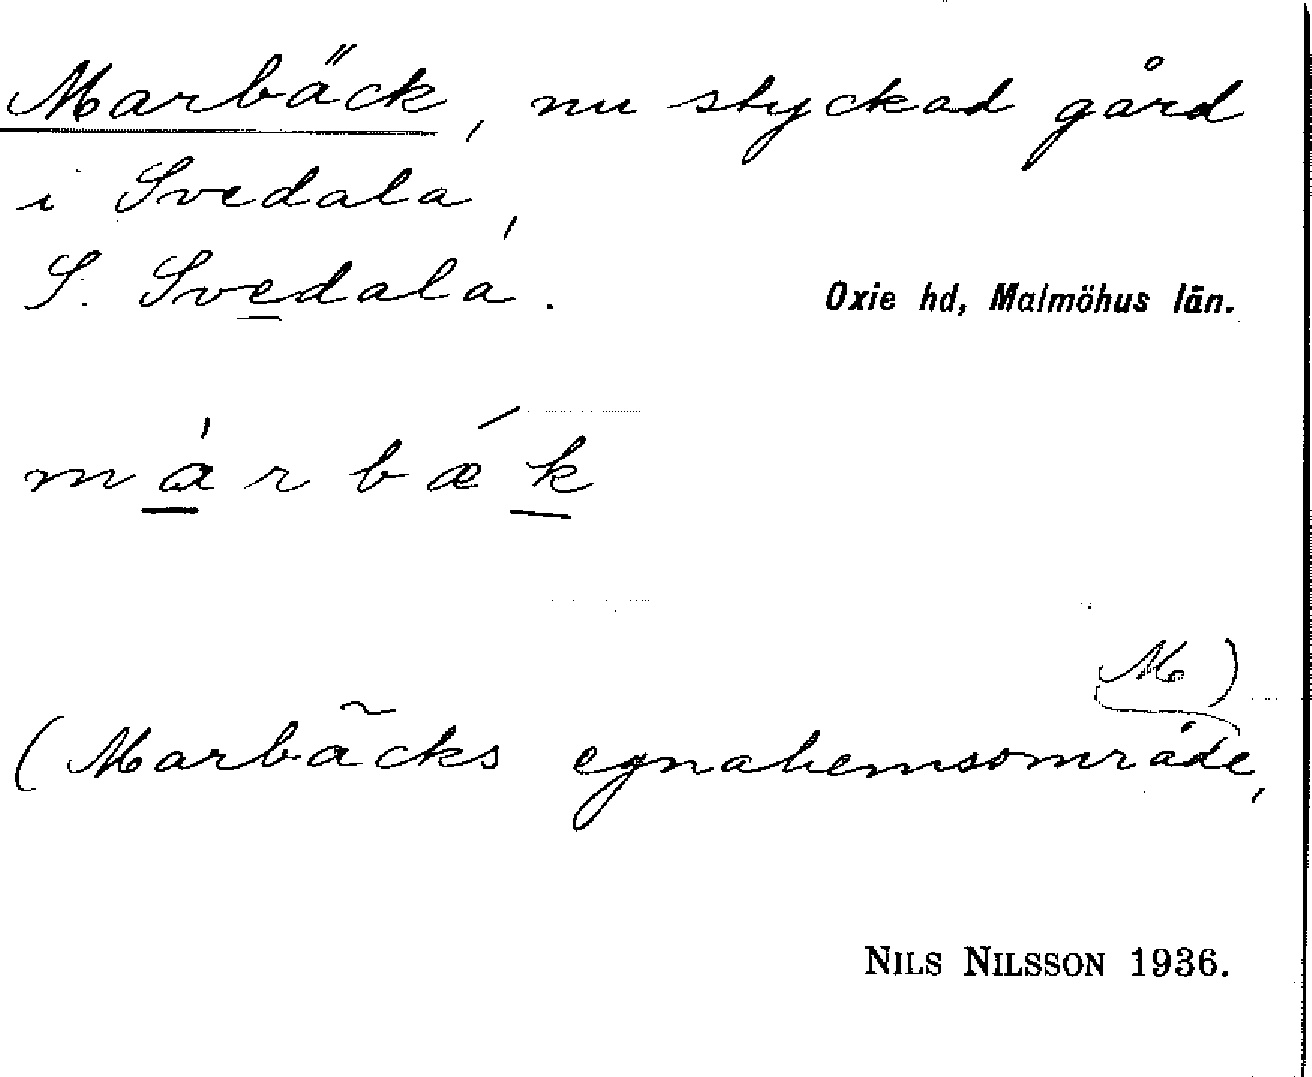 Marbäck, nu styckad gård
i Svedala,
S. Svedala. Oxie hd, Malmöhus län.
márbǽk
(Marbäcks egnahemsområde, M)
NILS NILSSON 1936.